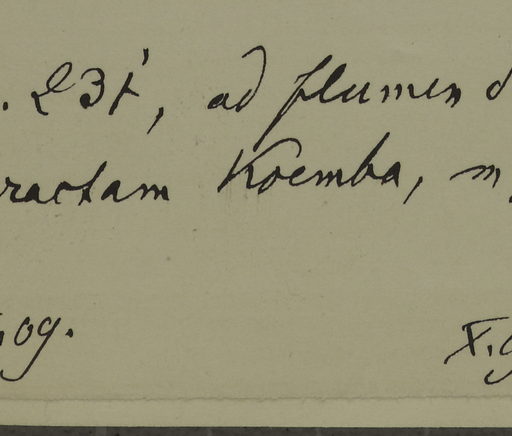 . 237, ad flumen d
ractam Koemba, m
.09. X.9